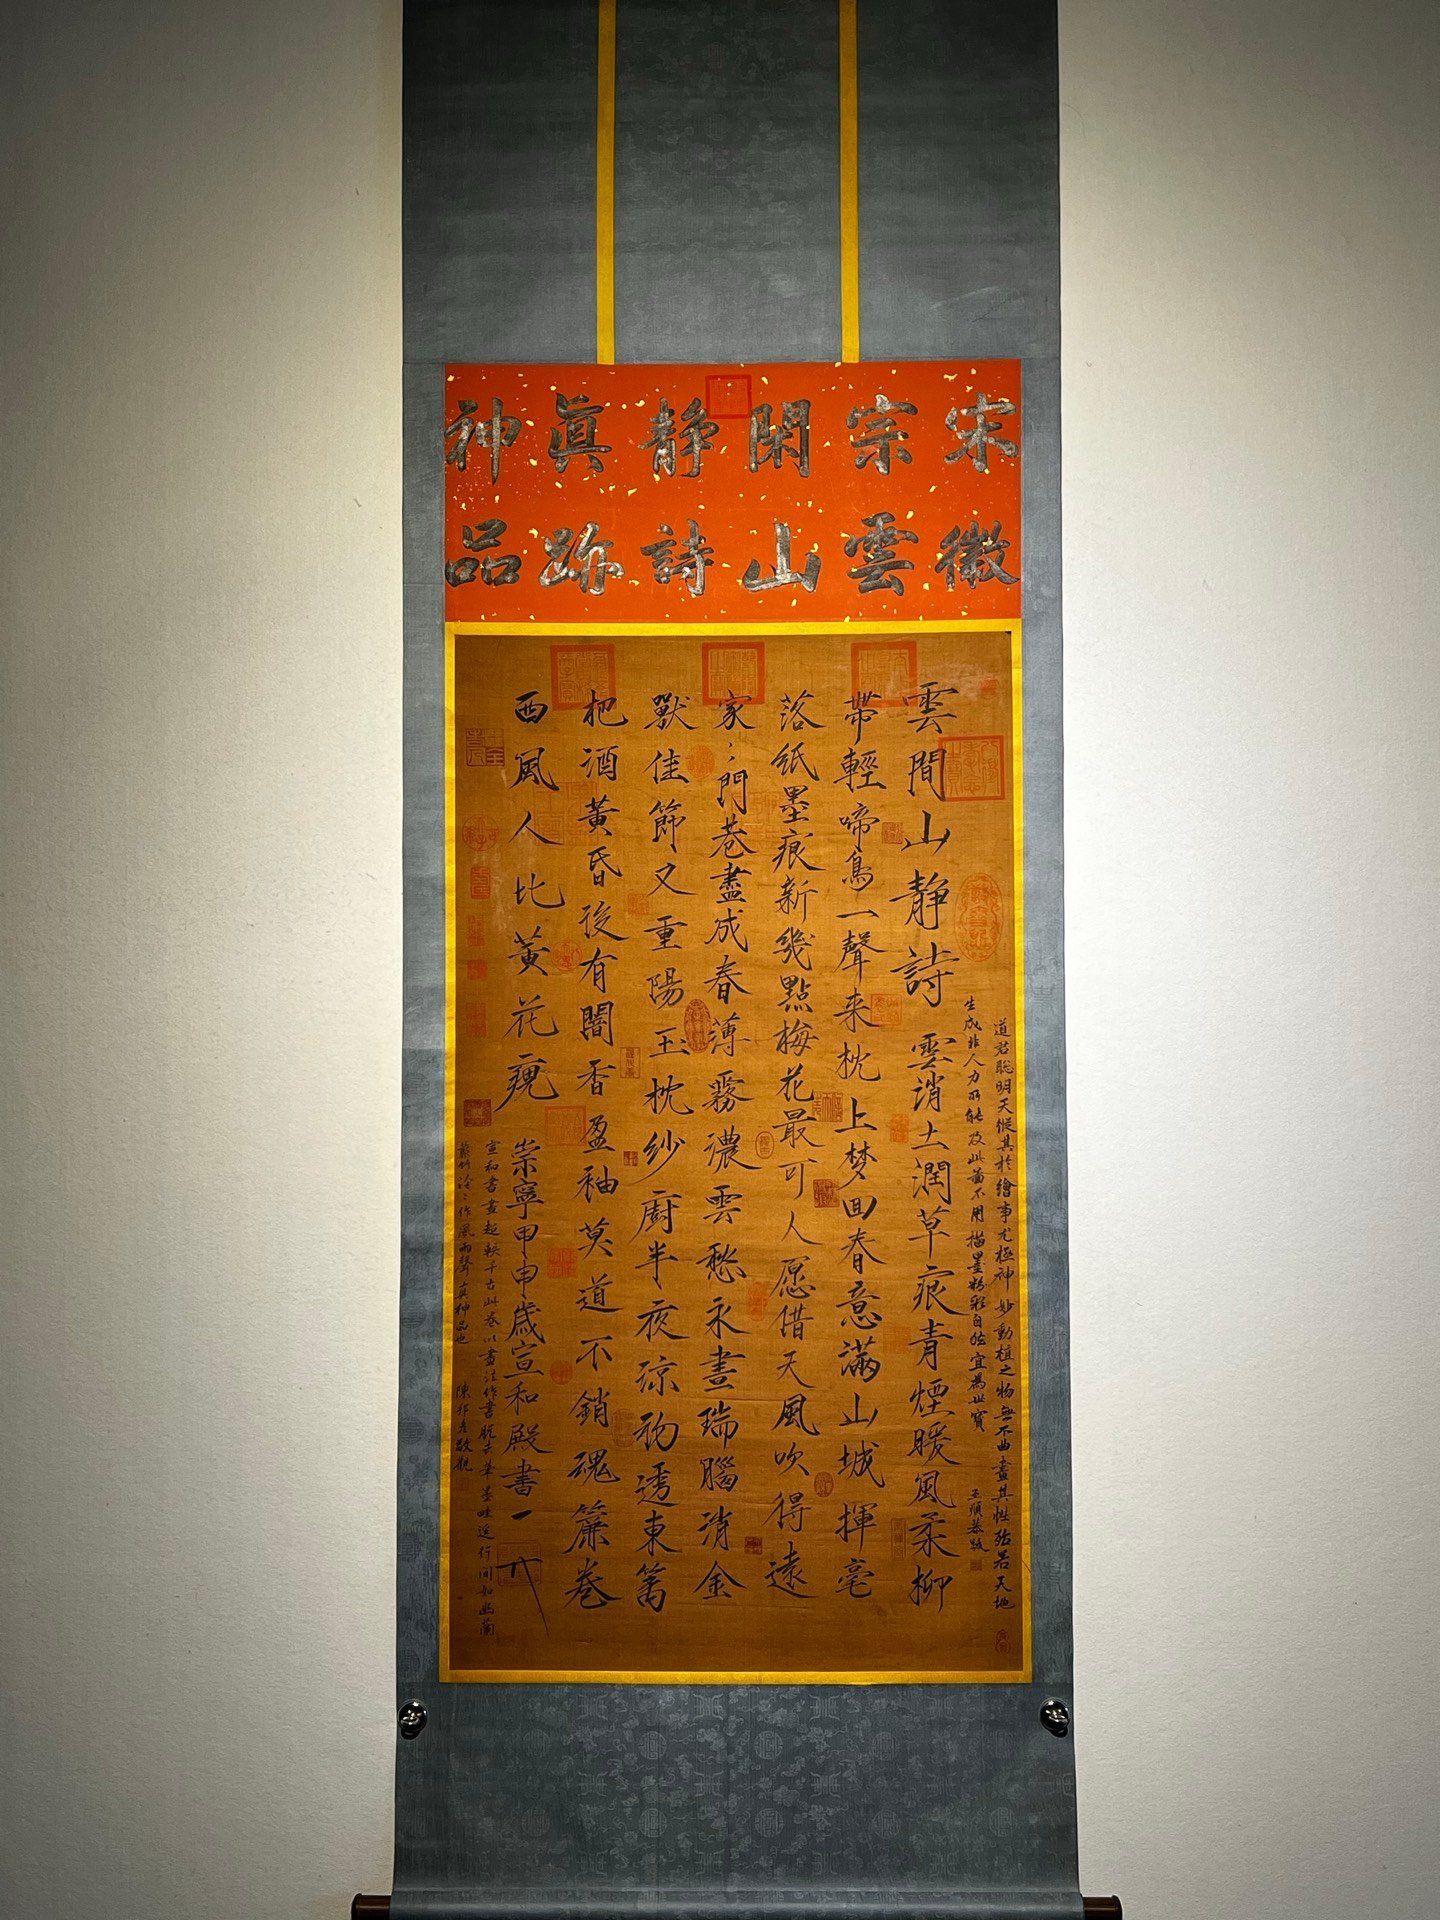 宋徽
宗雲
閑山
靜詩
眞跡
神品
雲閒山靜詩 雲消土潤草痕青煙暖風柔柳
帶輕啼鳥一聲来枕上梦回春意滿山城揮毫
落紙墨痕新幾點梅花最可人愿借天風吹得遠
家〻門巷盡成春薄霧濃雲愁永晝瑞腦消金
獸佳節又重陽玉枕紗廚半夜涼初透東籬
把酒黃昏後有闇香盈袖莫道不銷魂簾卷
西風人比黃花瘦
崇寧甲申歲宣和殿書一
道君聡明天縱其於繪事尤極神妙動植之物無不曲盡其性殆若天地
生成非人力所能及此圖不用描墨粉彩自然宜為世寶 王頊恭跋
宣和書畫超軼千古此卷以畫法作書脫去筆墨畦逕行間如幽蘭
叢竹泠〻作風雨聲真神品也 陳邦彦敬觀